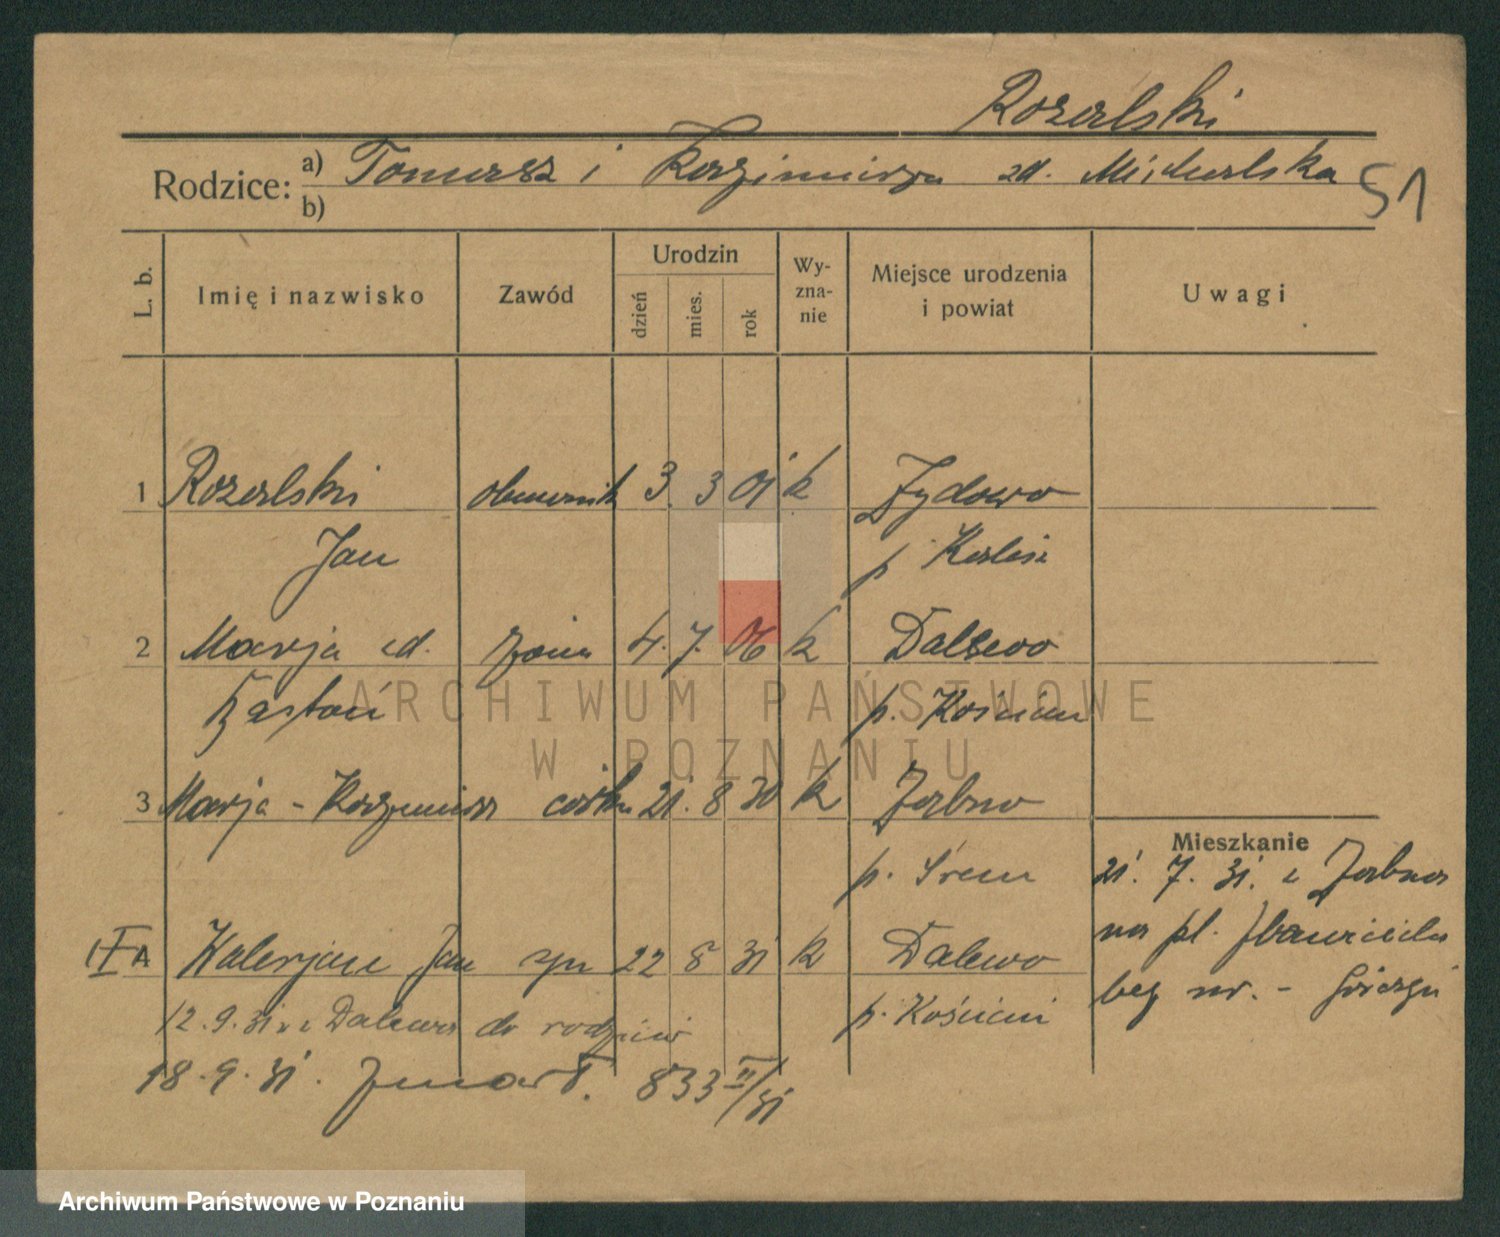 Rozalski
Rodzice: a) Tomasz i Kazimiera zd. Michalska 51
b)
L. b. Imię i nazwisko Zawód Urodzin dzień mies. rok Wy-zna-nie Miejsce urodzenia i powiat Uwagi
1 Rozalski 3. 3 01 k Żydowo
Jan p Kalisz
2 Marja zd. żona 4. 7. 06 k Dalewo
Bastań p. Kościan
ARCHIWUM PAŃSTWOWE
W POZNANIU
3 Marja - Kazimiera córka 21. 8 30 k Żabno
p. Śrem
Mieszkanie
21. 7. 31. z Żabna
na pl.
bez nr. -
IFA Walerjan Jan syn 22 8 31 k Dalewo
12.9.31 z Dalewa do rodziców p. Kościan
18.9.31. zmarł. 833 II/31
Archiwum Państwowe w Poznaniu